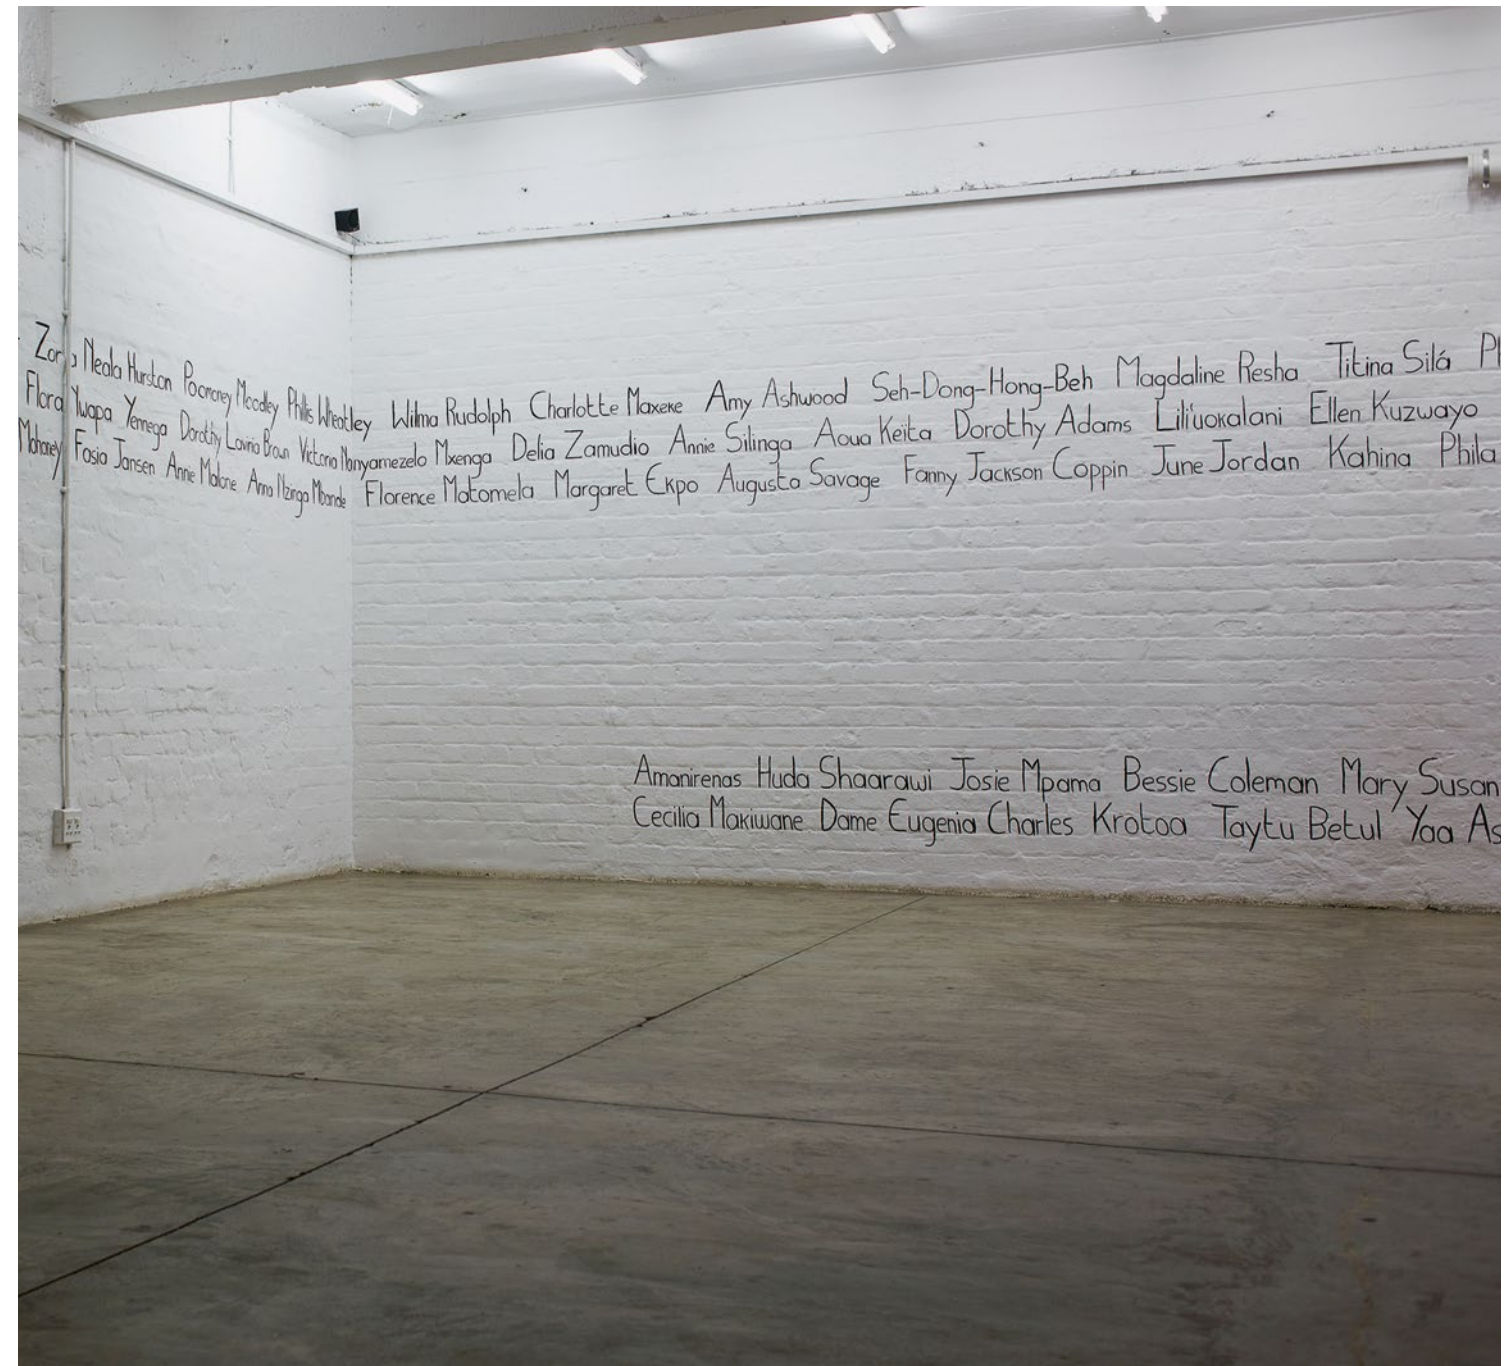 Zora Neala Hurston Poomoney Moodley Phillis Wheatley Wilma Rudolph Charlotte Maxeke Amy Ashwood Seh-Dong-Hong-Beh Magdaline Resha Titina Silá
Flora Nwapa Yennega Dorothy Lavinia Brown Victoria Nonyamezelo Mxenga Delia Zamudio Annie Silinga Aoua Keita Dorothy Adams Lili'uokalani Ellen Kuzwayo
Mahoney Fasia Jansen Annie Malone Anna Nzinga Mbande Florence Matomela Margaret Ekpo Augusta Savage Fanny Jackson Coppin June Jordan Kahina Phila
Amanirenas Huda Shaarawi Josie Mpama Bessie Coleman Mary Susan
Cecilia Makiwane Dame Eugenia Charles Krotoa Taytu Betul Yaa As